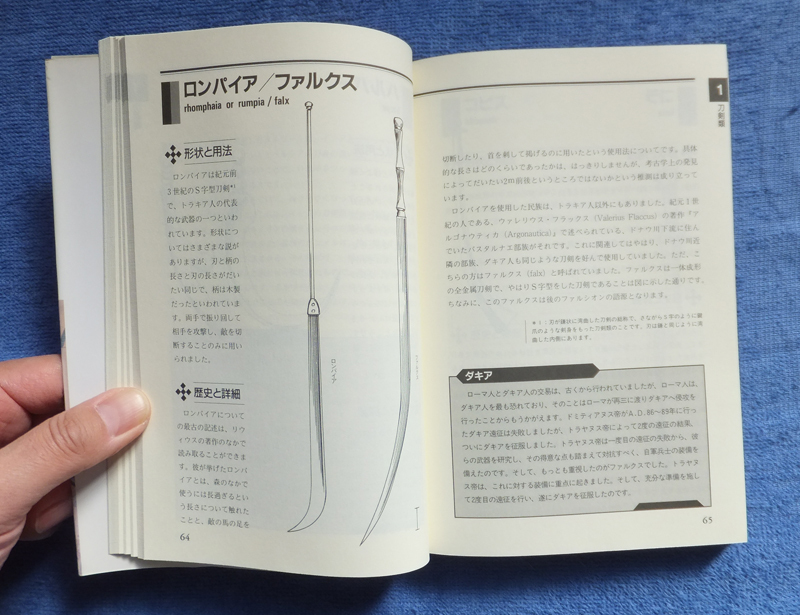 ロンパイア／ファルクス
rhomphaia or rumpia / falx
形状と用法
ロンパイアは紀元前
3世紀のS字型刀剣*¹
で、トラキア人の代表
的な武器の一つといわ
れています。形状につ
いてはさまざまな説が
ありますが、刃と柄の
長さと刃の長さがだい
たい同じで、柄は木製
だったといわれていま
す。両手で振り回して
相手を攻撃し、敵を切
断することのみに用い
られました。
歴史と詳細
ロンパイアについて
の最古の記述は、リウ
ィウスの著作のなかで
読み取ることができま
す。彼が挙げたロンパ
イアとは、森のなかで
使うには長過ぎるとい
う長さについて触れた
ことと、敵の馬の足を
ロンパイア
64
1
刀剣類
切断したり、首を刺して掲げるのに用いたという使用法についてです。具体
的な長さはどのくらいであったかは、はっきりしませんが、考古学上の発見
によってだいたい2m前後というところではないかという推師は成り立って
います。
ロンパイアを使用した民族は、トラキア人以外にもありました。紀元1世
紀の人である、ヴァレリウス・フラックス（Valerius Flaccus）の著作『ア
ルゴナウティカ（Argonautica）』で述べられている、ドナウ川下流に住ん
でいたバスタルナエ部族がそれです。これに関連してはやはり、ドナウ川近
隣の部族、ダキア人も同じような刀剣を好んで使用していました。ただ、こ
ちらの方はファルクス（falx）と呼ばれていました。ファルクスは一体成形
の全金属刀剣で、やはりS字型をした刀剣であることは図に示した通りです。
ちなみに、このファルクスは後のファルシオンの語源となります。
＊1：刃が鎌状に湾曲した刀剣の総称で、さながらS字のように鎌
爪のような剣身をもった刀剣類のことです。刃は鎌と同じように湾
曲した内側にあります。
ダキア
ローマ人とダキア人の交易は、古くから行われていましたが、ローマ人は、
ダキア人を最も恐れており、そのことはローマが再三に渡りダキアへ侵攻を
行ったことからもうかがえます。ドミティアヌス帝がA.D.86〜89年に行っ
たダキア遠征は失敗しましたが、トラヤヌス帝によって2度の遠征の結果、
ついにダキアを征服しました。トラヤヌス帝は一度目の遠征の失敗から、彼
らの武器を研究し、その得意な点も踏まえて対抗すべく、自軍兵士の装備を
備えたのです。そして、もっとも重視したのがファルクスでした。トラヤヌ
ス帝は、これに対する装備に重点に起きました。そして、充分な準備を施し
て2度目の遠征を行い、遂にダキアを征服したのです。
65